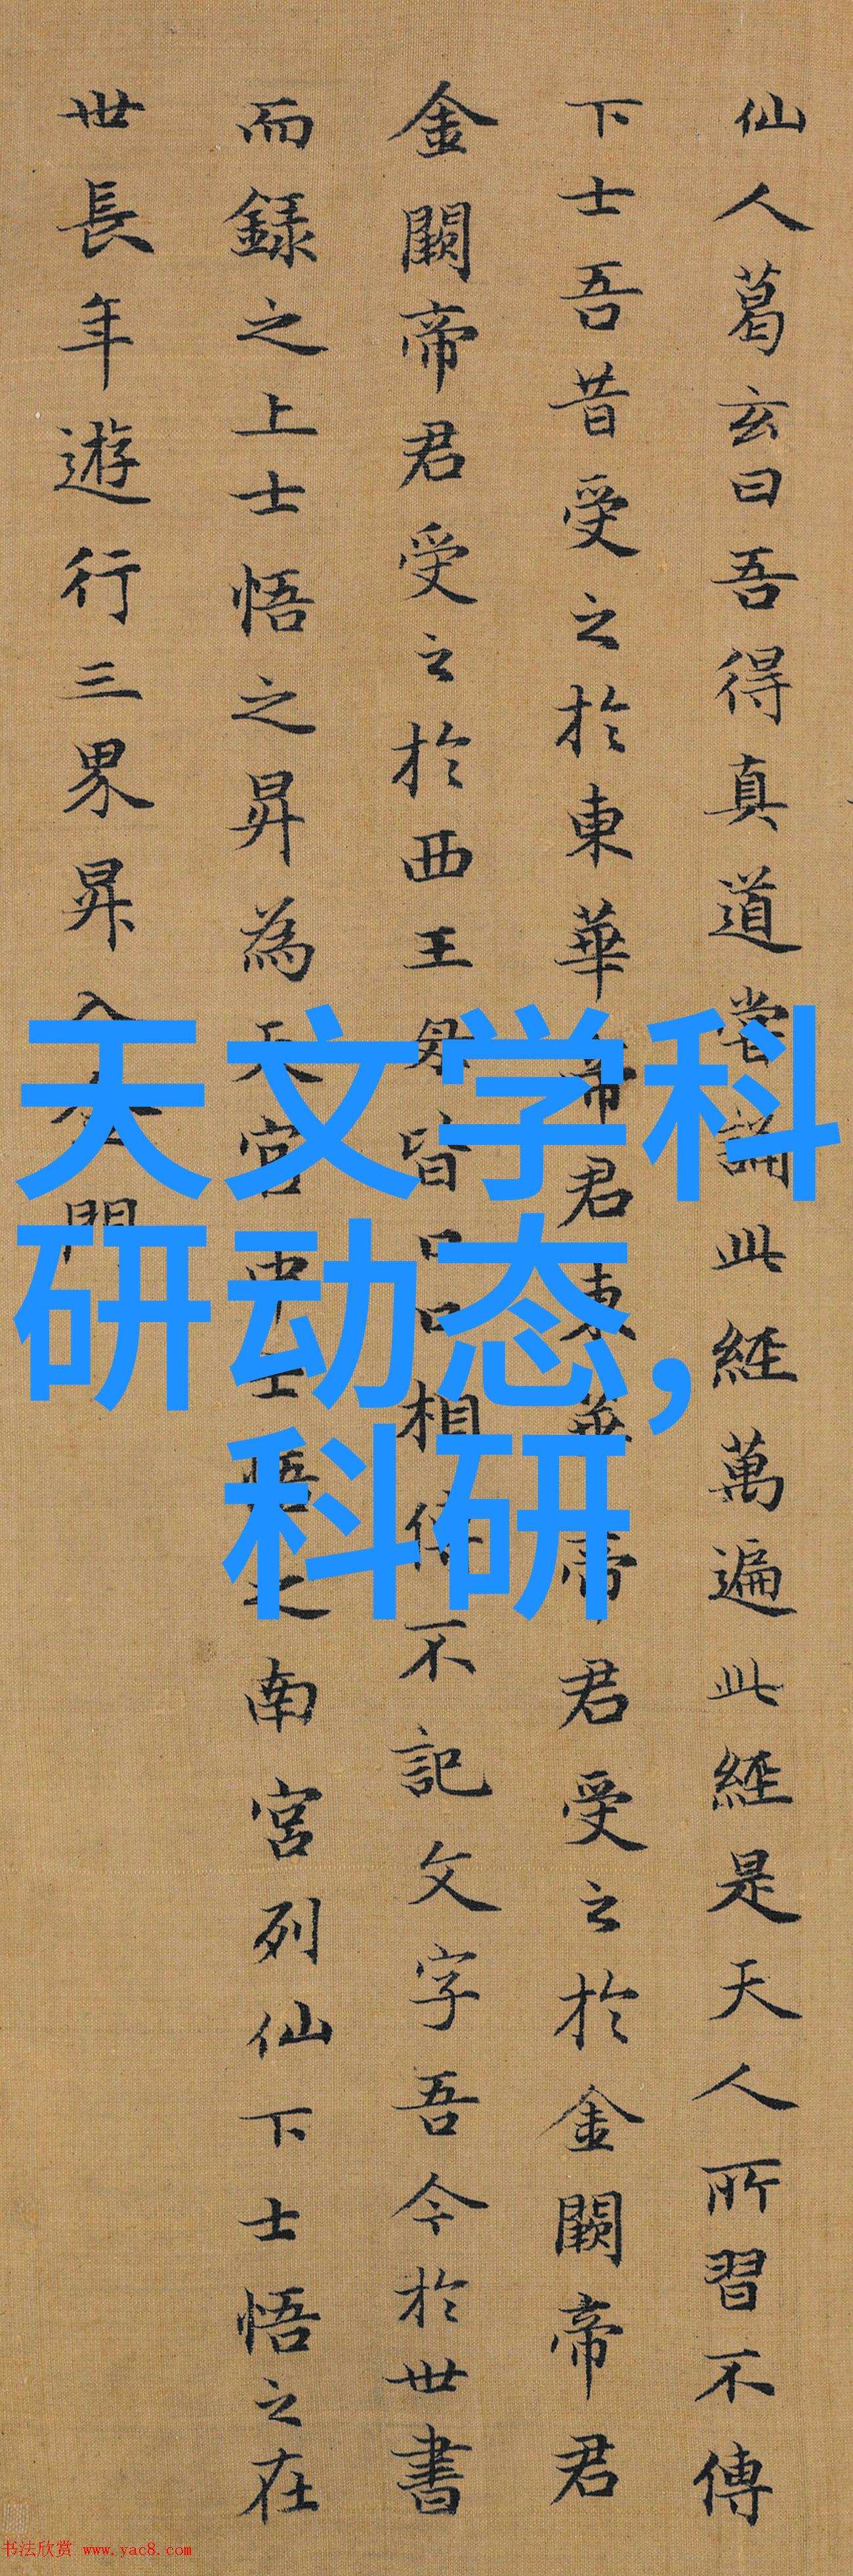 仙人葛玄曰吾得真道常誦此經萬遍此經是天人所習不傳
下士吾昔受之於東華帝君東華帝君受之於金闕帝君
金闕帝君受之於西王母皆口口相傳不記文字吾今於世書
而録之上士悟之昇為天官中士悟之南宮列仙下士悟之在
世長年遊行三界昇入金門
天文学科
研动态,
科研
书法欣赏 www.yac8.com